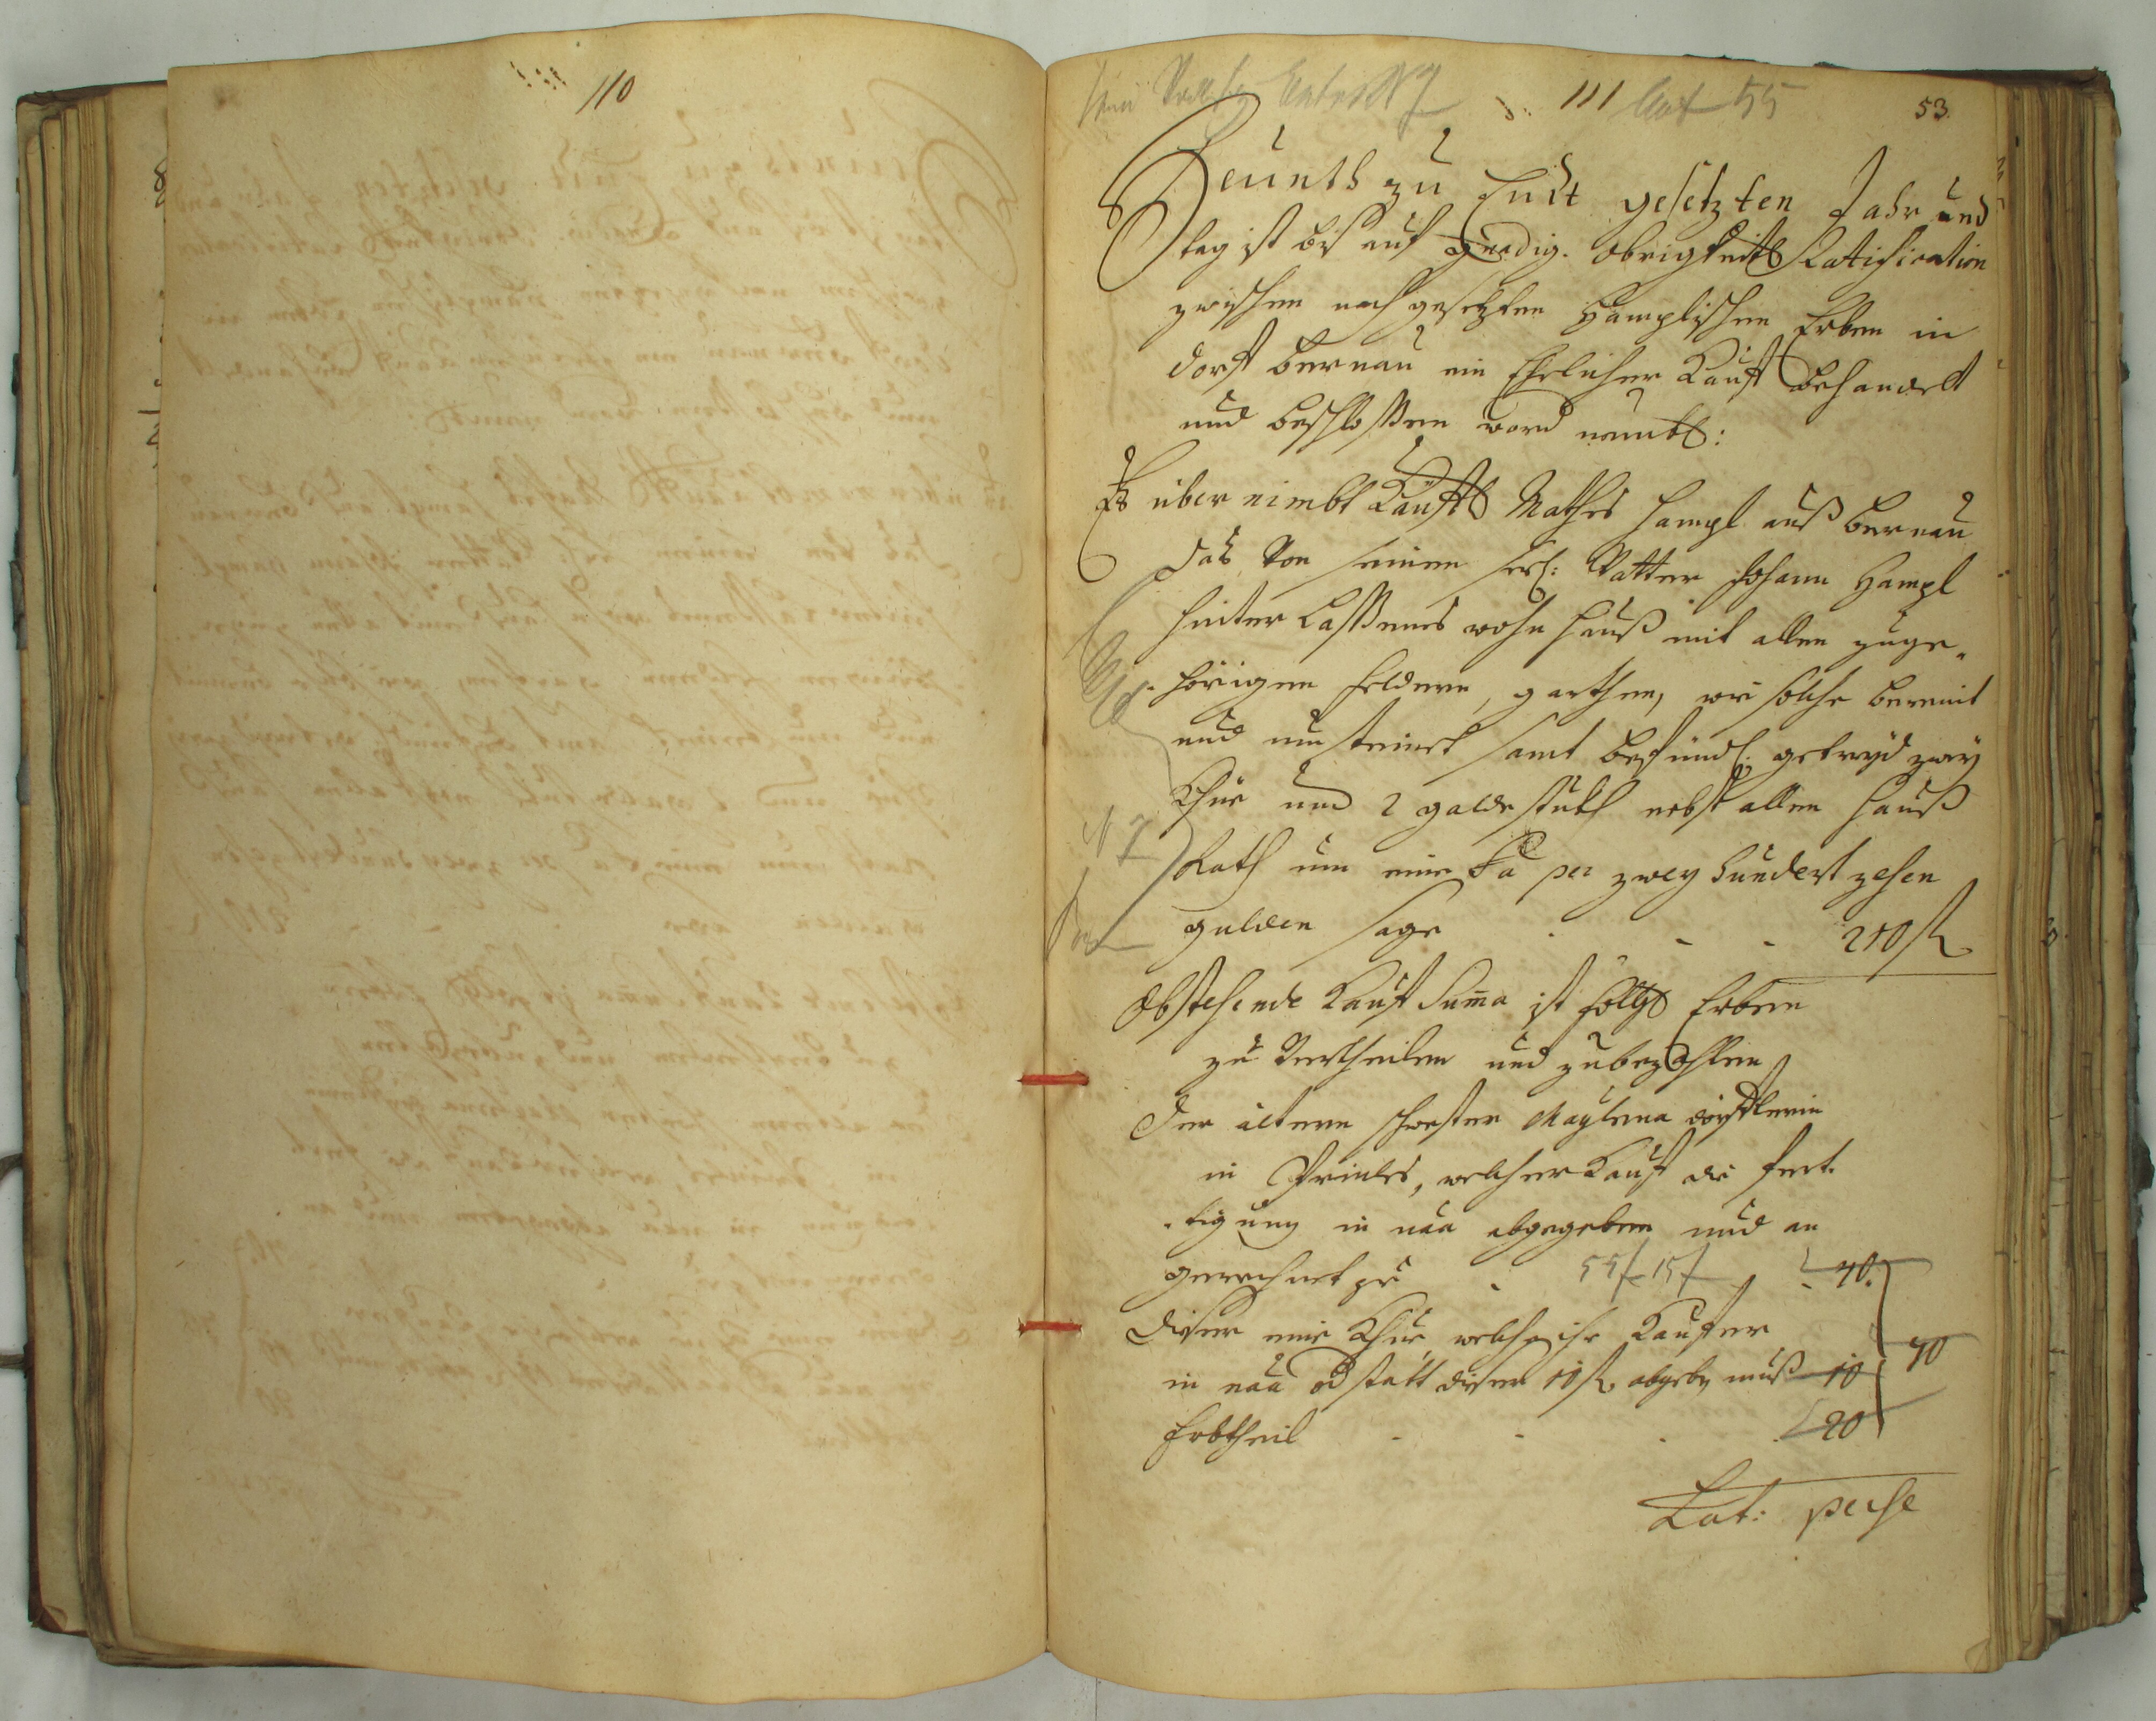 110
111
55
53.
Heunth zu Endt gesetzten Jahr und
tag ist biß auf gnedig. obrigkeitl Ratification
zwischen nachgesetzten Hamplischen Erben in
dorff Bernau ein Ehrlicher Kauff behandelt
und beschlossen word nemb:
Es über nimbt Käufl Mathes Hampl auß Bernau
das Von seinen seel: Vatter Johann Hampl
hinter Lassenes wohn hauß mit allen zuge„
hörigen feldern, garthen, wie solche beremit
und umsteinet samt befündl: getreyd zwey
Khüe und 2 galde stükh nebst allen hauß
Rath um eine Sa per zwey hundert zehen
gulden sage - - - 210 f
N 7
obstehende Kauf Suma ist folg Erben
zu Vertheilen und zubezahlen
Der ältern schwester Maglena
in Prinles, welcher Kauf die fert.
.tigung in naa abgegeben und an
gerechnet zu - 55 f 15 f 40.
diser eine Khue, welche ihr Kaufer
in naa od statt diser 10 f abgeb muß 10
70
Erbtheil - - - 20
Lat: per se